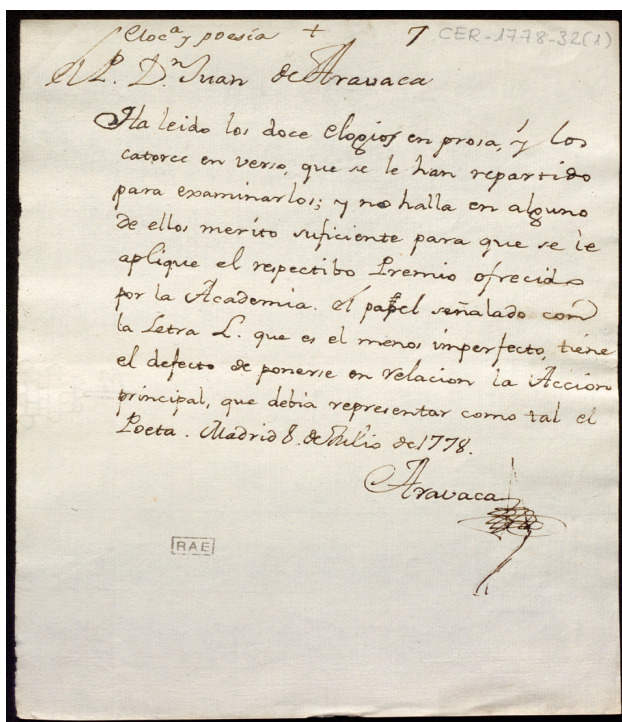 Eloc.ª y poesía + 7 CER-1778-32(1)
El P. D.ⁿ Juan de Aravaca
Ha leido los doce Elogios en prosa, y los
catorce en verso, que se le han repartido
para examinarlos; y no halla en alguno
de ellos merito suficiente para que se le
aplique el respectibo Premio ofrecido
por la Academia. El papel señalado con
la Letra L. que es el menos imperfecto, tiene
el defecto de ponerse en relacion la Accion
principal, que debia representar como tal el
Poeta. Madrid 8. de Julio de 1778.
Aravaca
RAE